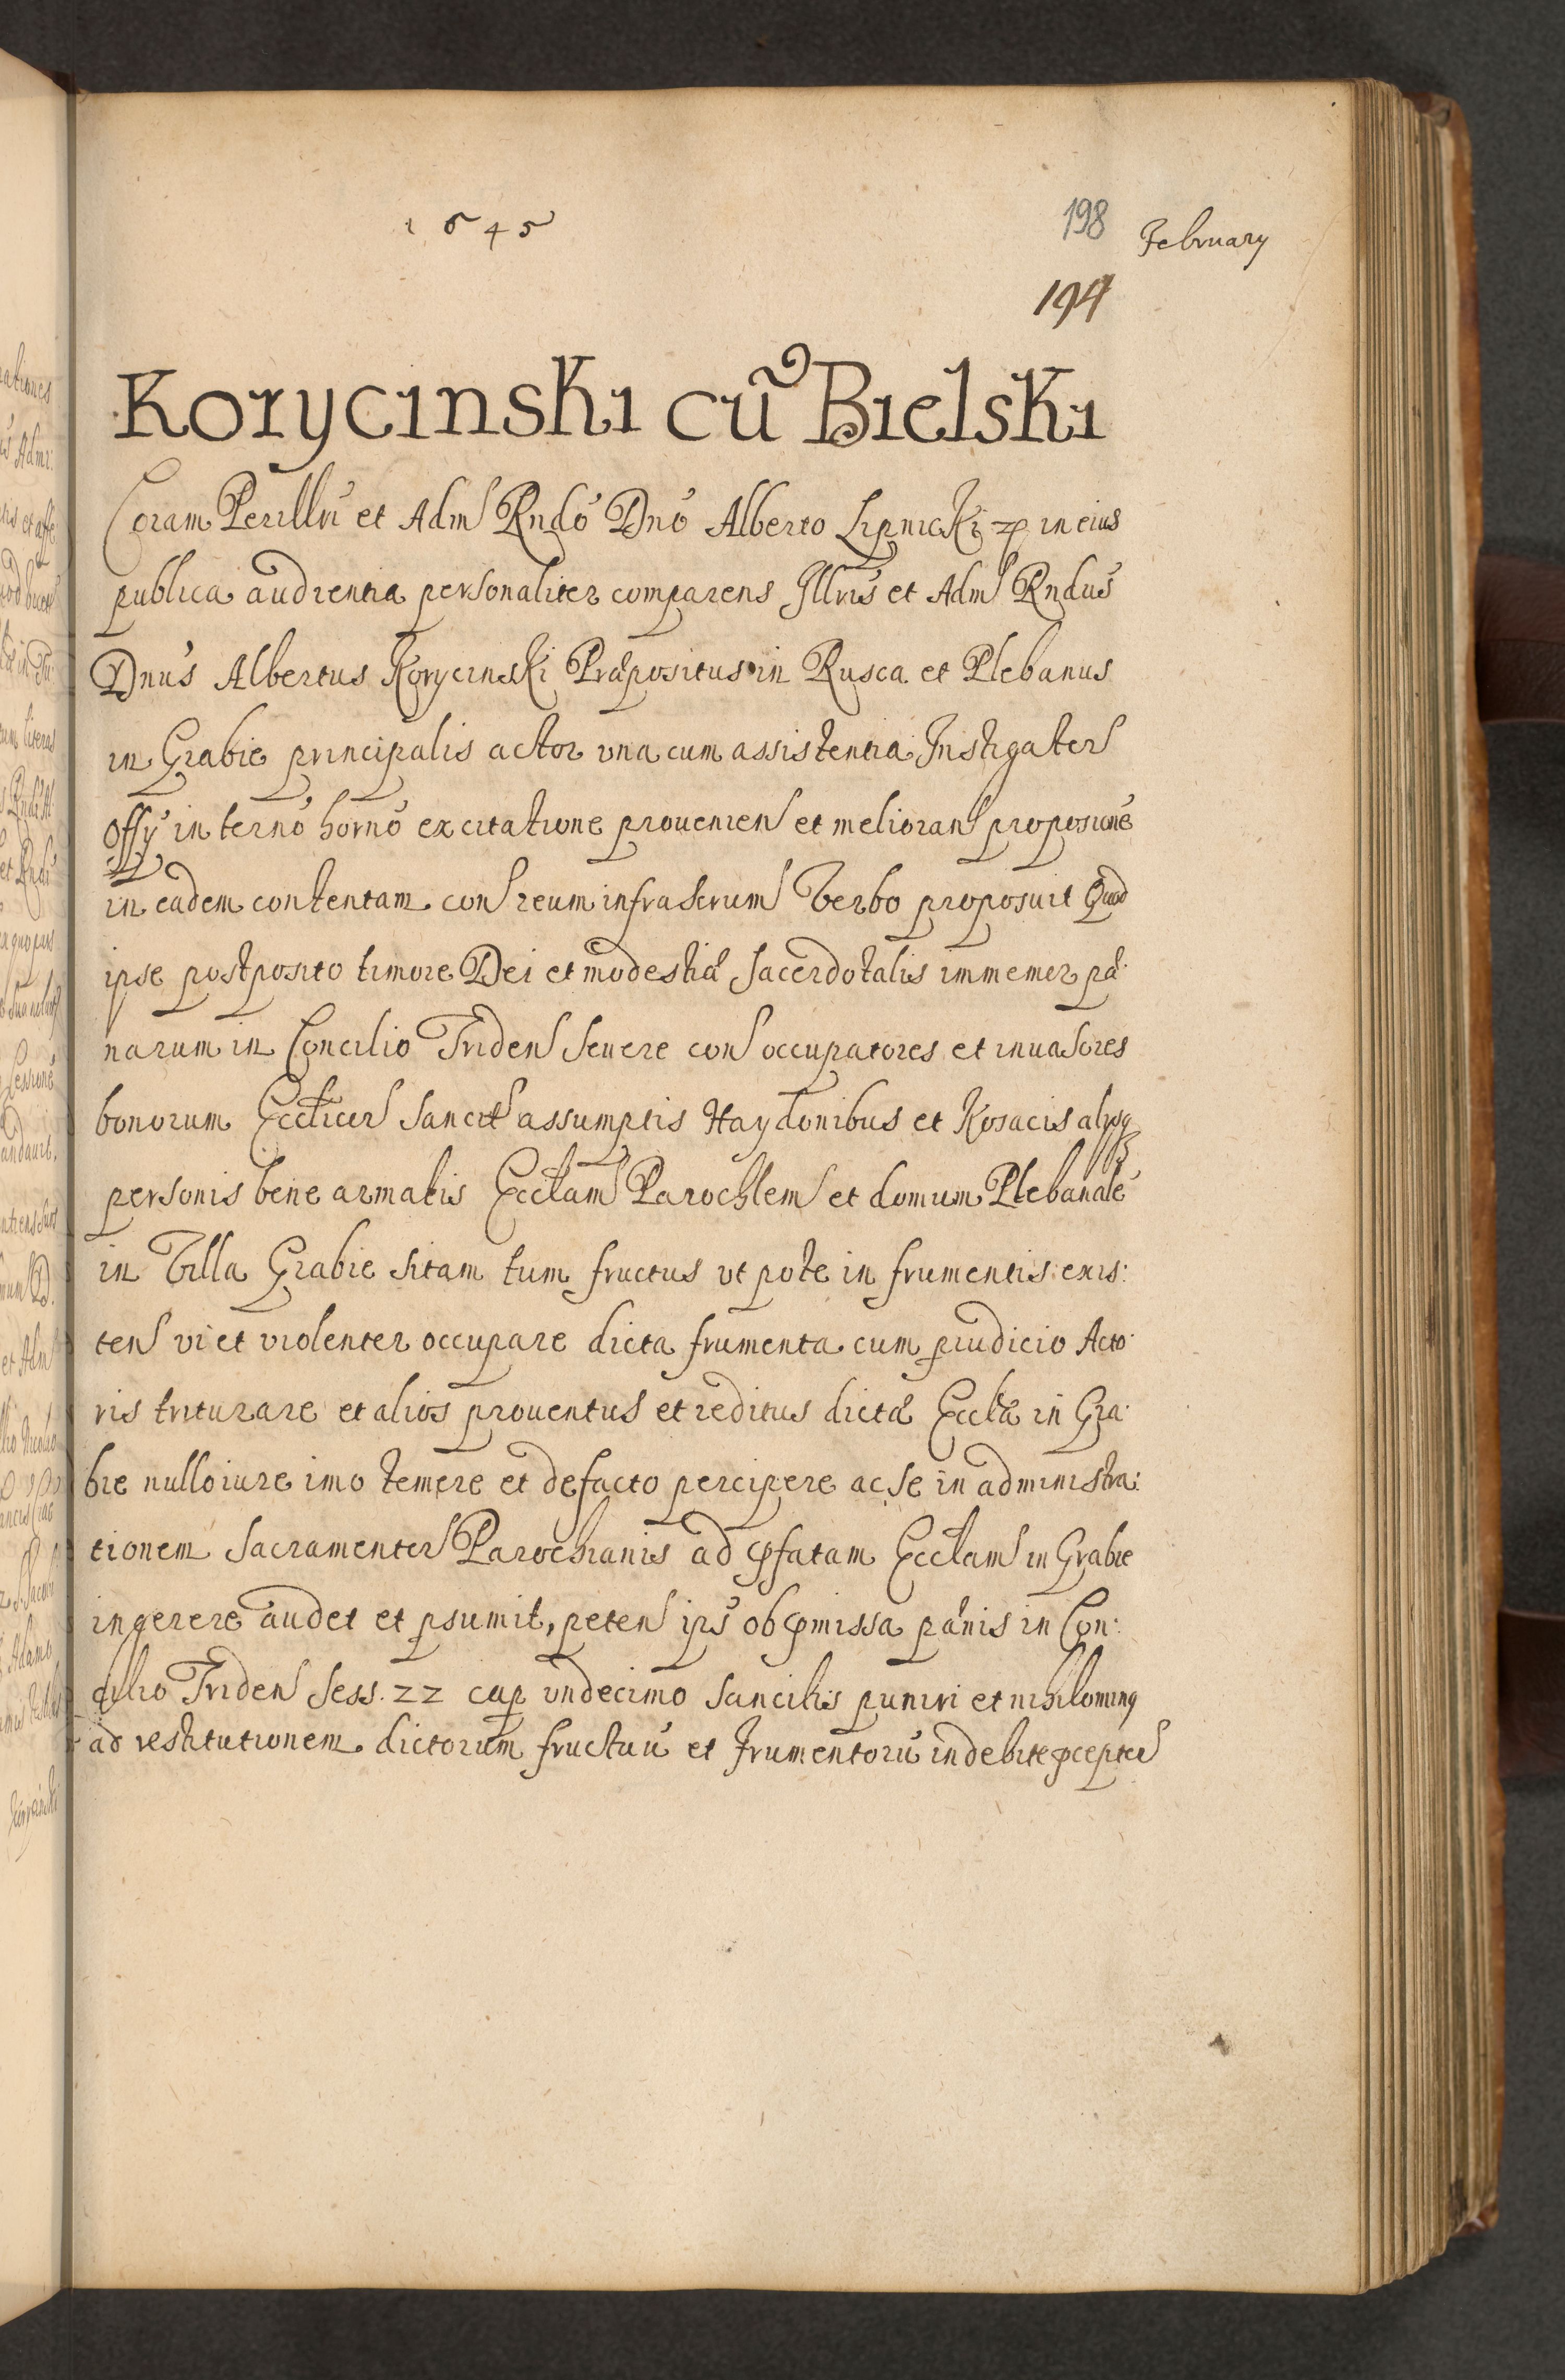 1645
198 February
194
Korycinski cũ Bielski
Coram Perillri et Adm Rndo Dno Alberto Lipnicki zp in eius
publica audientia personaliter comparens Illris et Adm Rndus
Dnus Albertus Korycinski Præpositus in Rusca et Plebanus
in Grabie principalis actor vna cum assistentia Instigater
Offy in terno horno excitatione prouenien et melioran proposione
in eadem contentam con reum infrascrum Verbo proposuit Quod
ipse postposito timore Dei et modestiæ sacerdotalis immemor pæ
narum in Concilio Triden seuere con occupatores et inuasores
bonorum Ecclicer sancit assumptis Haydonibus et Kosacis alysq
personis bene armatis Ecclam Parochlem et domum Plebanale
in Villa Grabie sitam tum fructus vt pote in frumentis exis:
ten vi et violenter occupare dicta frumenta cum piudicio Acto
ris triturare et alios prouentus et reditus dictæ Ecclæ in Gra
bie nullo iure imo temere et defacto percipere ac se in administra:
tionem Sacramenter Parochianis ad pfatam Ecclam in Grabie
ingerere audet et psumit, peten ips ob pmissa pænis in Con:
cilio Triden Sess. 22 cap vndecimo sancitis puniri et nihilominq
ad restitutionem dictorum fructuu et Frumentoru indebite pcepter